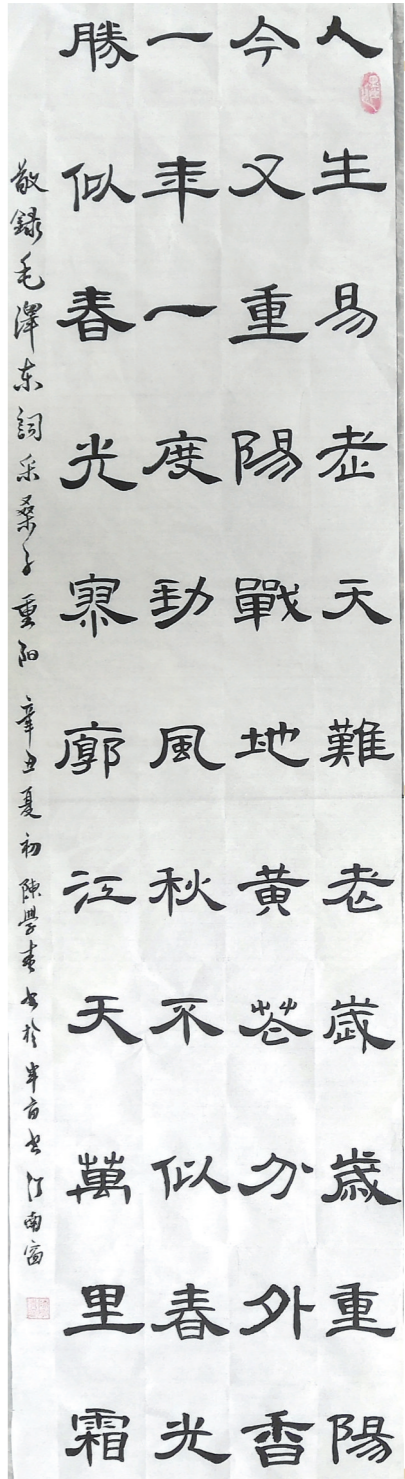 人生易老天難老歲歲重陽
今又重陽戰地黃花分外香
一年一度勁風秋不似春光
勝似春光寥廓江天萬里霜
敬錄毛澤东詞采桑子重阳 辛丑夏初陳學书於半亩南窗